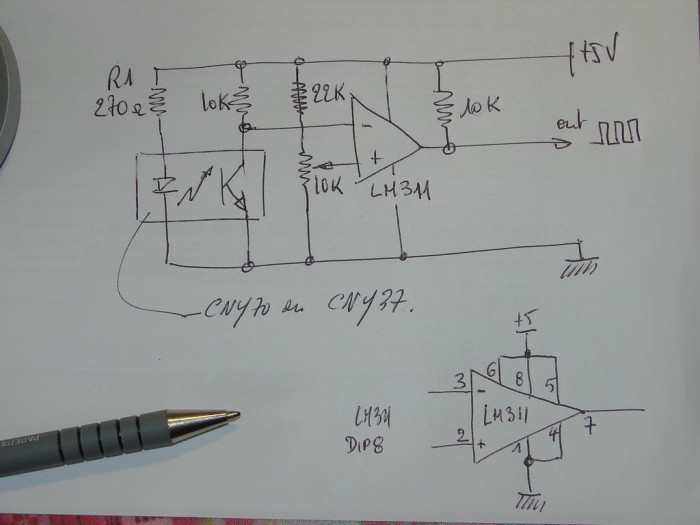 +5V
R1
270Ω
10K
22K
10K
out
-
+
10K
LM311
CNY70 ou CNY37.
+5
6
8
5
3
-
LM311
7
LM311
DIP8
2
+
1
4